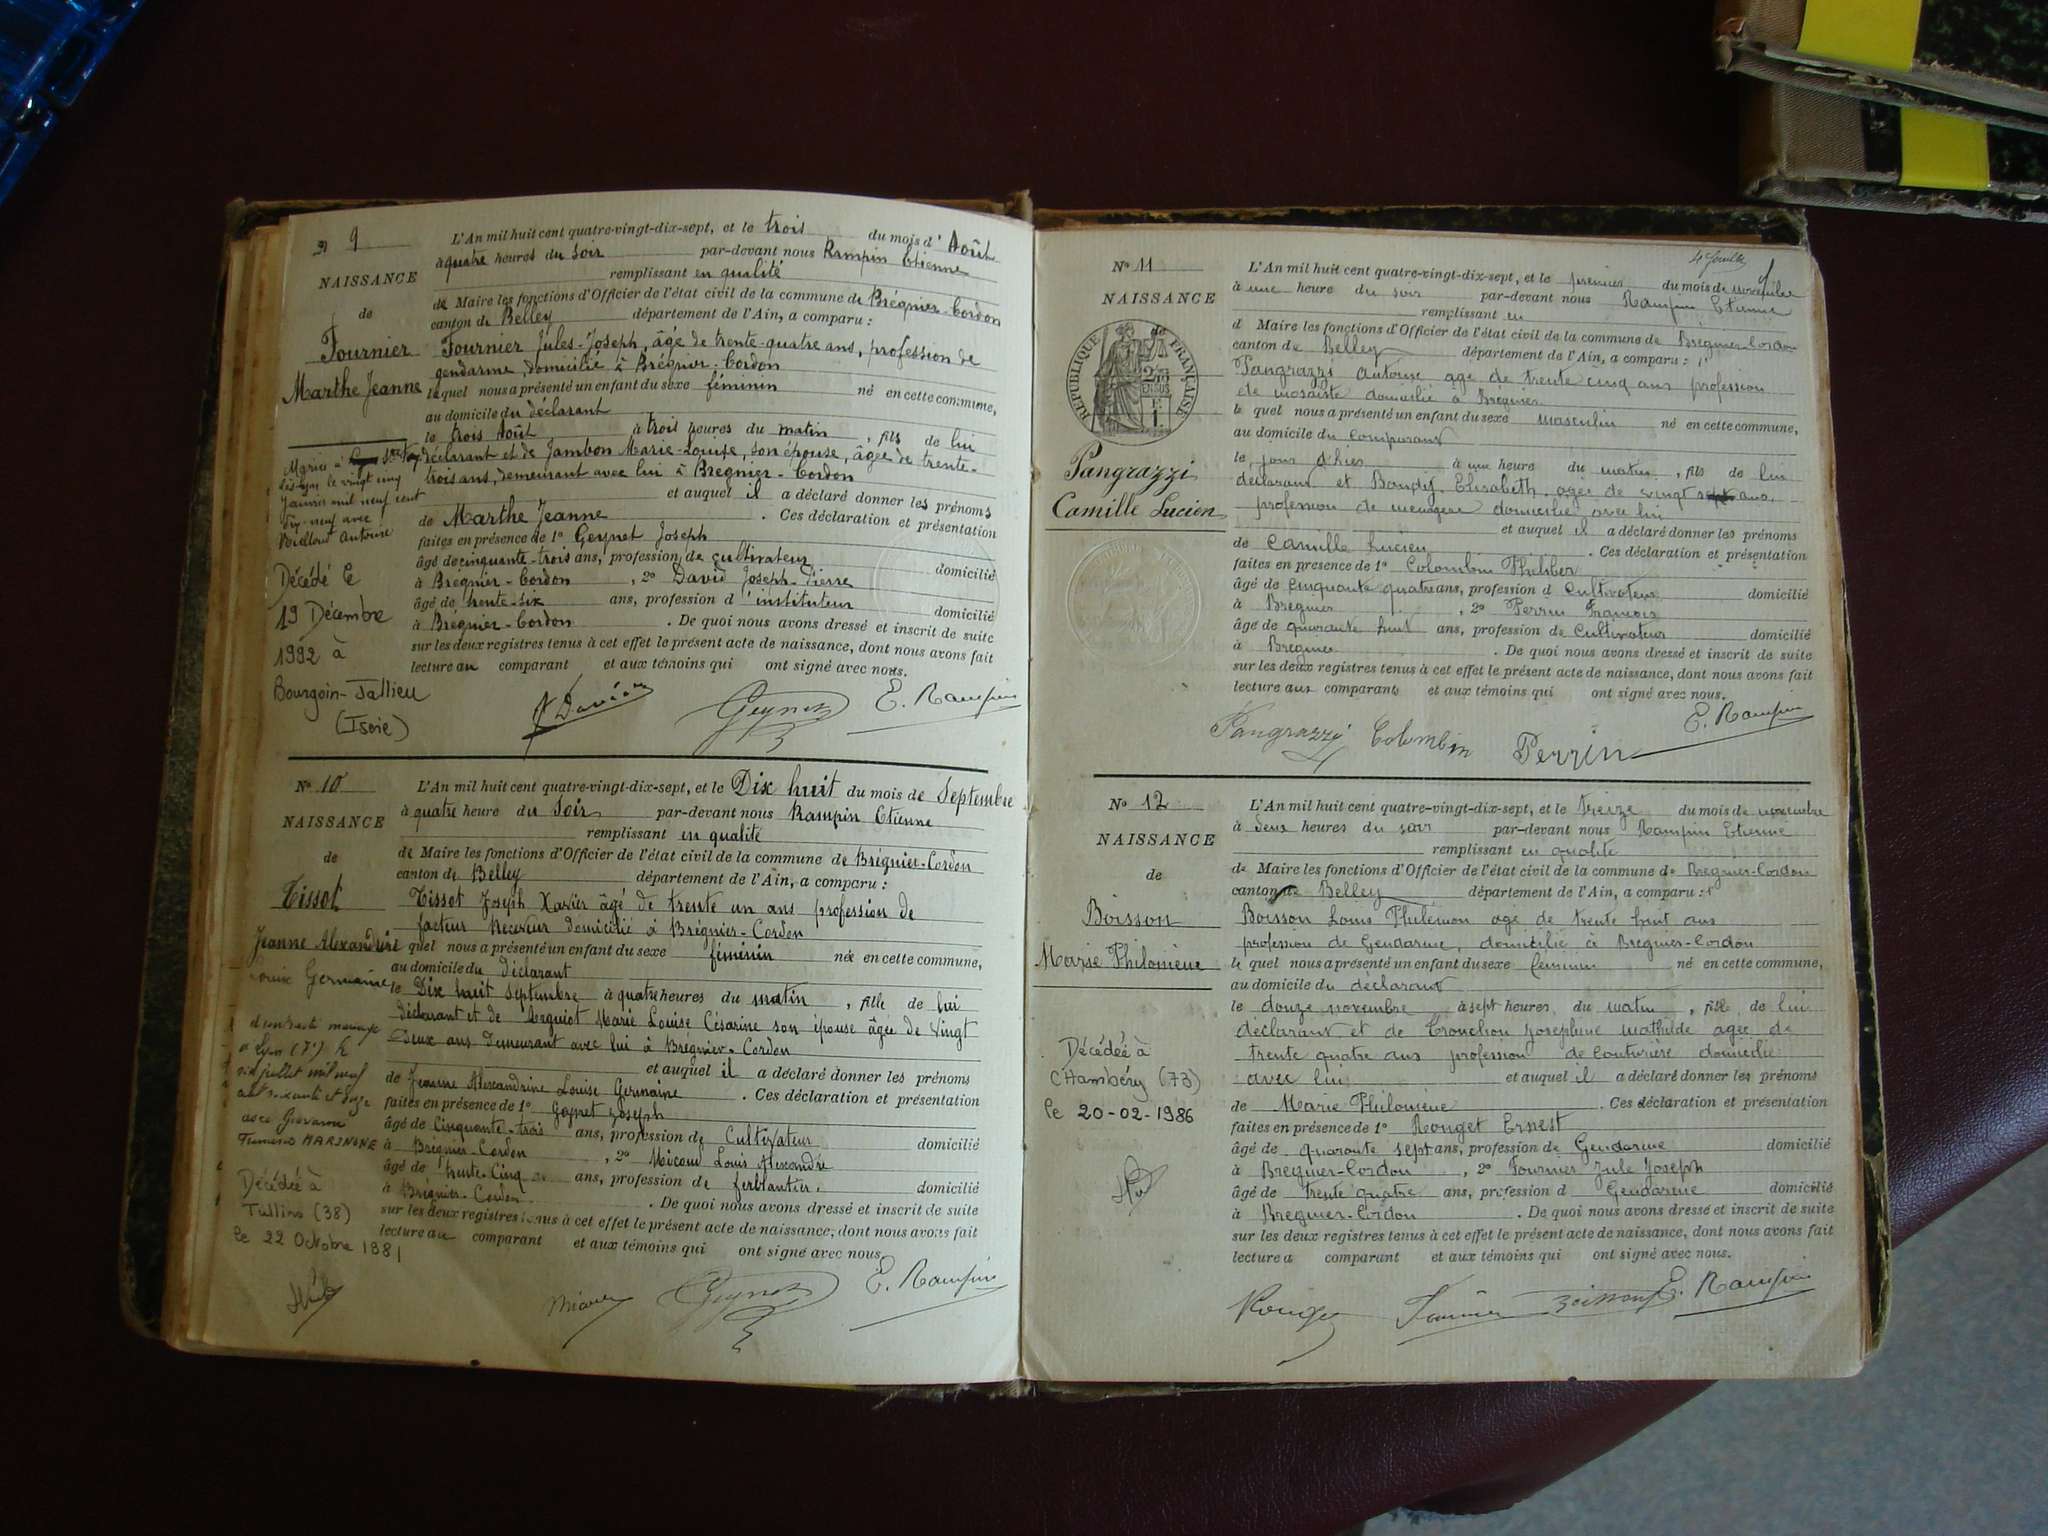 9
L'An mil huit cent quatre-vingt-dix-sept, et le trois du mois d'Août
à quatre heures du soir par-devant nous Rampin Etienne
remplissant en qualité
NAISSANCE
de Maire les fonctions d'Officier de l'état civil de la commune de Brégnier-Cordon
de
canton de Belley département de l'Ain, a comparu :
Fournier
Marthe Jeanne
Fournier Jules-Joseph, âgé de trente-quatre ans, profession de
gendarme, domicilié à Brégnier-Cordon
lequel nous a présenté un enfant du sexe féminin né en cette commune,
au domicile du déclarant
le trois Août à trois heures du matin, fils de lui
déclarant et de Jambon Marie-Louise, son épouse, âgée de trente-
trois ans, demeurant avec lui à Brégnier-Cordon
et auquel il a déclaré donner les prénoms
de Marthe Jeanne . Ces déclaration et présentation
faites en présence de 1° Geynet Joseph
âgé de cinquante-trois ans, profession de cultivateur domicilié
à Brégnier-Cordon , 2° David Joseph-Pierre
âgé de trente-six ans, profession d'instituteur domicilié
à Brégnier-Cordon . De quoi nous avons dressé et inscrit de suite
sur les deux registres tenus à cet effet le présent acte de naissance, dont nous avons fait
lecture au comparant et aux témoins qui ont signé avec nous.
Mariée à
le vingt cinq
Janvier mil neuf cent
dix-neuf avec
Antoine
Décédé le
19 Décembre
1992 à
Bourgoin-Jallieu
(Isère)
David Geynet E. Rampin
N° 10
L'An mil huit cent quatre-vingt-dix-sept, et le Dix huit du mois de Septembre
à quatre heure du Soir par-devant nous Rampin Etienne
NAISSANCE
remplissant en qualité
de
de Maire les fonctions d'Officier de l'état civil de la commune de Brégnier-Cordon
canton de Belley département de l'Ain, a comparu :
Tissot
Jeanne Alexandrine
Louise Germaine
Tissot Joseph Xavier âgé de trente un ans profession de
facteur Receveur domicilié à Brégnier-Cordon
quel nous a présenté un enfant du sexe féminin née en cette commune,
au domicile du déclarant
le Dix huit Septembre à quatre heures du matin, fille de lui
déclarant et de Marie Louise Césarine son épouse âgée de vingt
deux ans demeurant avec lui à Brégnier-Cordon
et auquel il a déclaré donner les prénoms
de Jeanne Alexandrine Louise Germaine . Ces déclaration et présentation
faites en présence de 1° Geynet Joseph
âgé de Cinquante-trois ans, profession de Cultivateur domicilié
à Brégnier-Cordon , 2° Micoud Louis Alexandre
âgé de trente-Cinq ans, profession de ferblantier domicilié
à Brégnier-Cordon . De quoi nous avons dressé et inscrit de suite
sur les deux registres tenus à cet effet le présent acte de naissance, dont nous avons fait
lecture au comparant et aux témoins qui ont signé avec nous.
a contracté mariage
à Lyon (7e) le
six juillet mil neuf
cent soixante et
avec Giovanni
MARINONE
Décédée à
Tullins (38)
le 22 Octobre 1981
Geynet E. Rampin
4 feuille
N° 11
L'An mil huit cent quatre-vingt-dix-sept, et le premier du mois de novembre
à une heure du soir par-devant nous Rampin Etienne
NAISSANCE
remplissant en
de
d Maire les fonctions d'Officier de l'état civil de la commune de Brégnier-Cordon
canton de Belley département de l'Ain, a comparu :
RÉPUBLIQUE FRANÇAISE
Pangrazzi
Camille Lucien
Pangrazzi Antoine age de trente cinq ans profession
de mosaiste domicilié à Bregnier
le quel nous a présenté un enfant du sexe masculin né en cette commune,
au domicile du comparant
le jour d'hier à une heure du matin, fils de lui
declarant et Elisabeth agée de vingt sept ans
profession de menagere domicilie avec lui
et auquel il a déclaré donner les prénoms
de Camille Lucien . Ces déclaration et présentation
faites en présence de 1° Colombin Philiber
âgé de cinquante quatre ans, profession d Cultivateur domicilié
à Bregnier , 2° Perrin François
âgé de quarante huit ans, profession de Cultivateur domicilié
à Bregnier . De quoi nous avons dressé et inscrit de suite
sur les deux registres tenus à cet effet le présent acte de naissance, dont nous avons fait
lecture aux comparants et aux témoins qui ont signé avec nous.
Pangrazzi Colombin Perrin E. Rampin
N° 12
L'An mil huit cent quatre-vingt-dix-sept, et le treize du mois de novembre
à deux heures du soir par-devant nous Rampin Etienne
NAISSANCE
remplissant en qualité
de
de Maire les fonctions d'Officier de l'état civil de la commune de Bregnier-Cordon
canton de Belley département de l'Ain, a comparu :
Boisson
Marie Philomène
Boisson Louis Philémon agé de trente huit ans
profession de Gendarme, domicilié à Bregnier-Cordon
le quel nous a présenté un enfant du sexe feminin né en cette commune,
au domicile du déclarant
le douze novembre à sept heures du matin, fille de lui
déclarant et de Tronchon Josephine Mathilde agée de
trente quatre ans profession de couturière domicilié
avec lui et auquel il a déclaré donner les prénoms
de Marie Philomène . Ces déclaration et présentation
faites en présence de 1° Rouget Ernest
âgé de quarante sept ans, profession de Gendarme domicilié
à Bregnier-Cordon , 2° Fournier Jule Joseph
âgé de trente quatre ans, profession d Gendarme domicilié
à Bregnier-Cordon . De quoi nous avons dressé et inscrit de suite
sur les deux registres tenus à cet effet le présent acte de naissance, dont nous avons fait
lecture a comparant et aux témoins qui ont signé avec nous.
Décédée à
Chambéry (73)
le 20-02-1986
Rouget Fournier Boisson E. Rampin